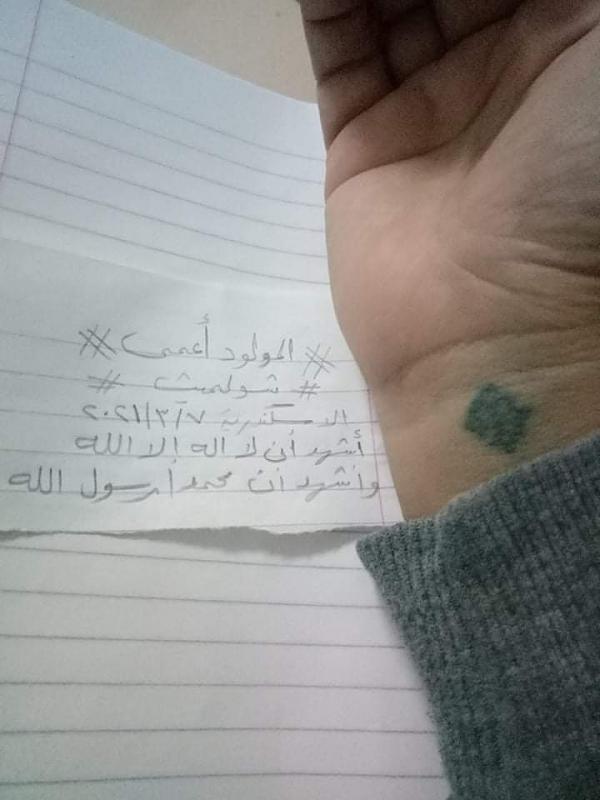 # المولود أعمى #
# شولميث #
الاسكندرية ٢٠٢١/٣/٧
أشهد أن لا اله إلا الله
وأشهد أن محمداً رسول الله